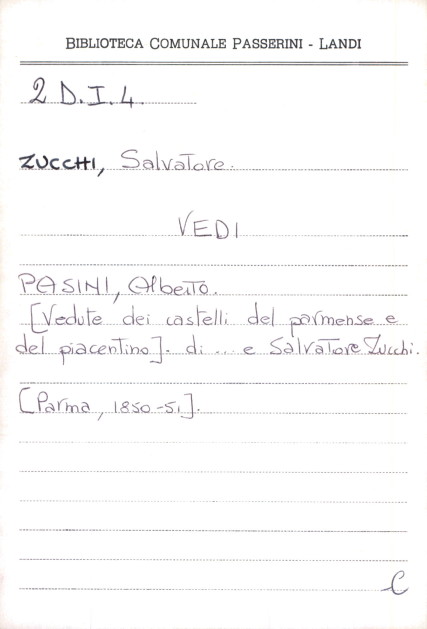 BIBLIOTECA COMUNALE PASSERINI - LANDI
2 D.I.4.
ZUCCHI, Salvatore.
VEDI
PASINI, Alberto.
[Vedute dei castelli del parmense e
del piacentino]. di ... e Salvatore Zucchi.
[Parma, 1850-51].
C